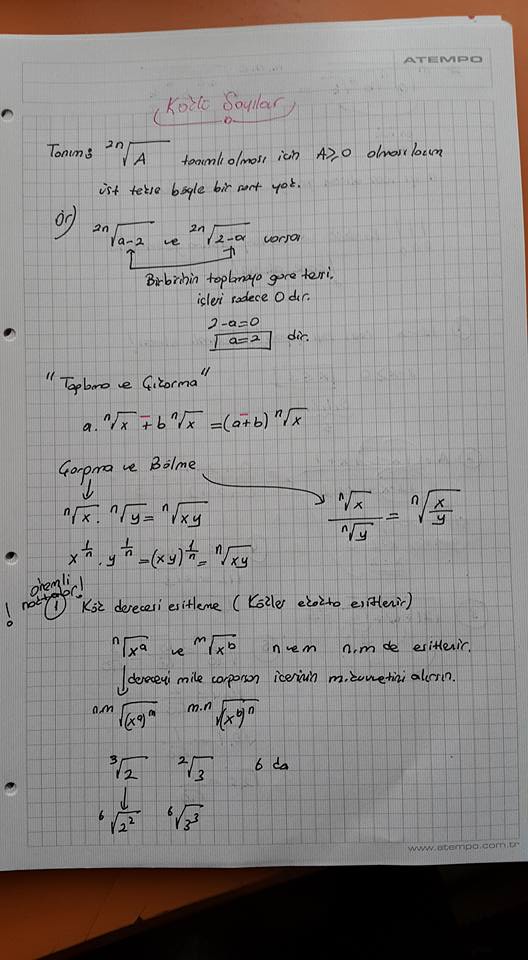 ATEMPO
Köklü Sayılar
Tanım: ²ⁿ√A tanımlı olması için A≥0 olması lazım
üst tekse böyle bir şart yok.
Ör) ²ⁿ√(a-2) ve ²ⁿ√(2-a) varsa
Birbirinin toplamaya göre tersi.
içleri sadece 0 dır.
2-a=0
a=2 dir.
"Toplama ve Çıkarma"
a.ⁿ√x ∓ b ⁿ√x = (a∓b) ⁿ√x
Çarpma ve Bölme
ⁿ√x . ⁿ√y = ⁿ√(xy)
ⁿ√x / ⁿ√y = ⁿ√(x/y)
x^(1/n) . y^(1/n) = (xy)^(1/n) = ⁿ√(xy)
! önemli
noktalar!
① Kök derecesi eşitleme (Kökler ekokta eşitlenir)
ⁿ√(x^a) ve ᵐ√(x^b) n ve m n.m de eşitlenir.
dereceyi m ile çarparsan içerinin m. kuvvetini alırsın.
ⁿ·ᵐ√((x^a)^m) ᵐ·ⁿ√((x^b)^n)
³√2 ²√3 6 da
⁶√(2²) ⁶√(3³)
www.atempo.com.tr